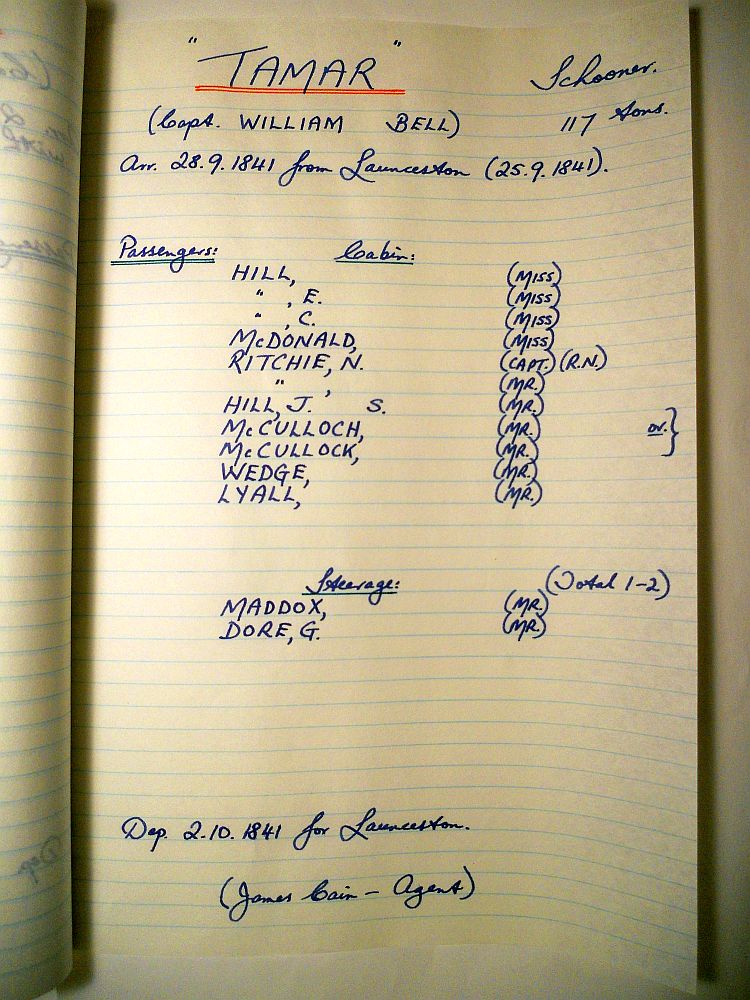 "TAMAR" Schooner.
(Capt. WILLIAM BELL) 117 tons.
Arr. 28.9.1841 from Launceston (25.9.1841).
Passengers: Cabin:
HILL, (MISS)
" , E. (MISS)
" , C. (MISS)
McDONALD, (MISS)
RITCHIE, N. (CAPT.) (R.N.)
" , (MR.)
HILL, J. S. (MR.)
McCULLOCH, (MR.) or. }
McCULLOCK, (MR.)
WEDGE, (MR.)
LYALL, (MR.)
Steerage: (Total 1-2)
MADDOX, (MR.)
DORE, G. (MR.)
Dep. 2.10.1841 for Launceston.
(James Cain - Agent)